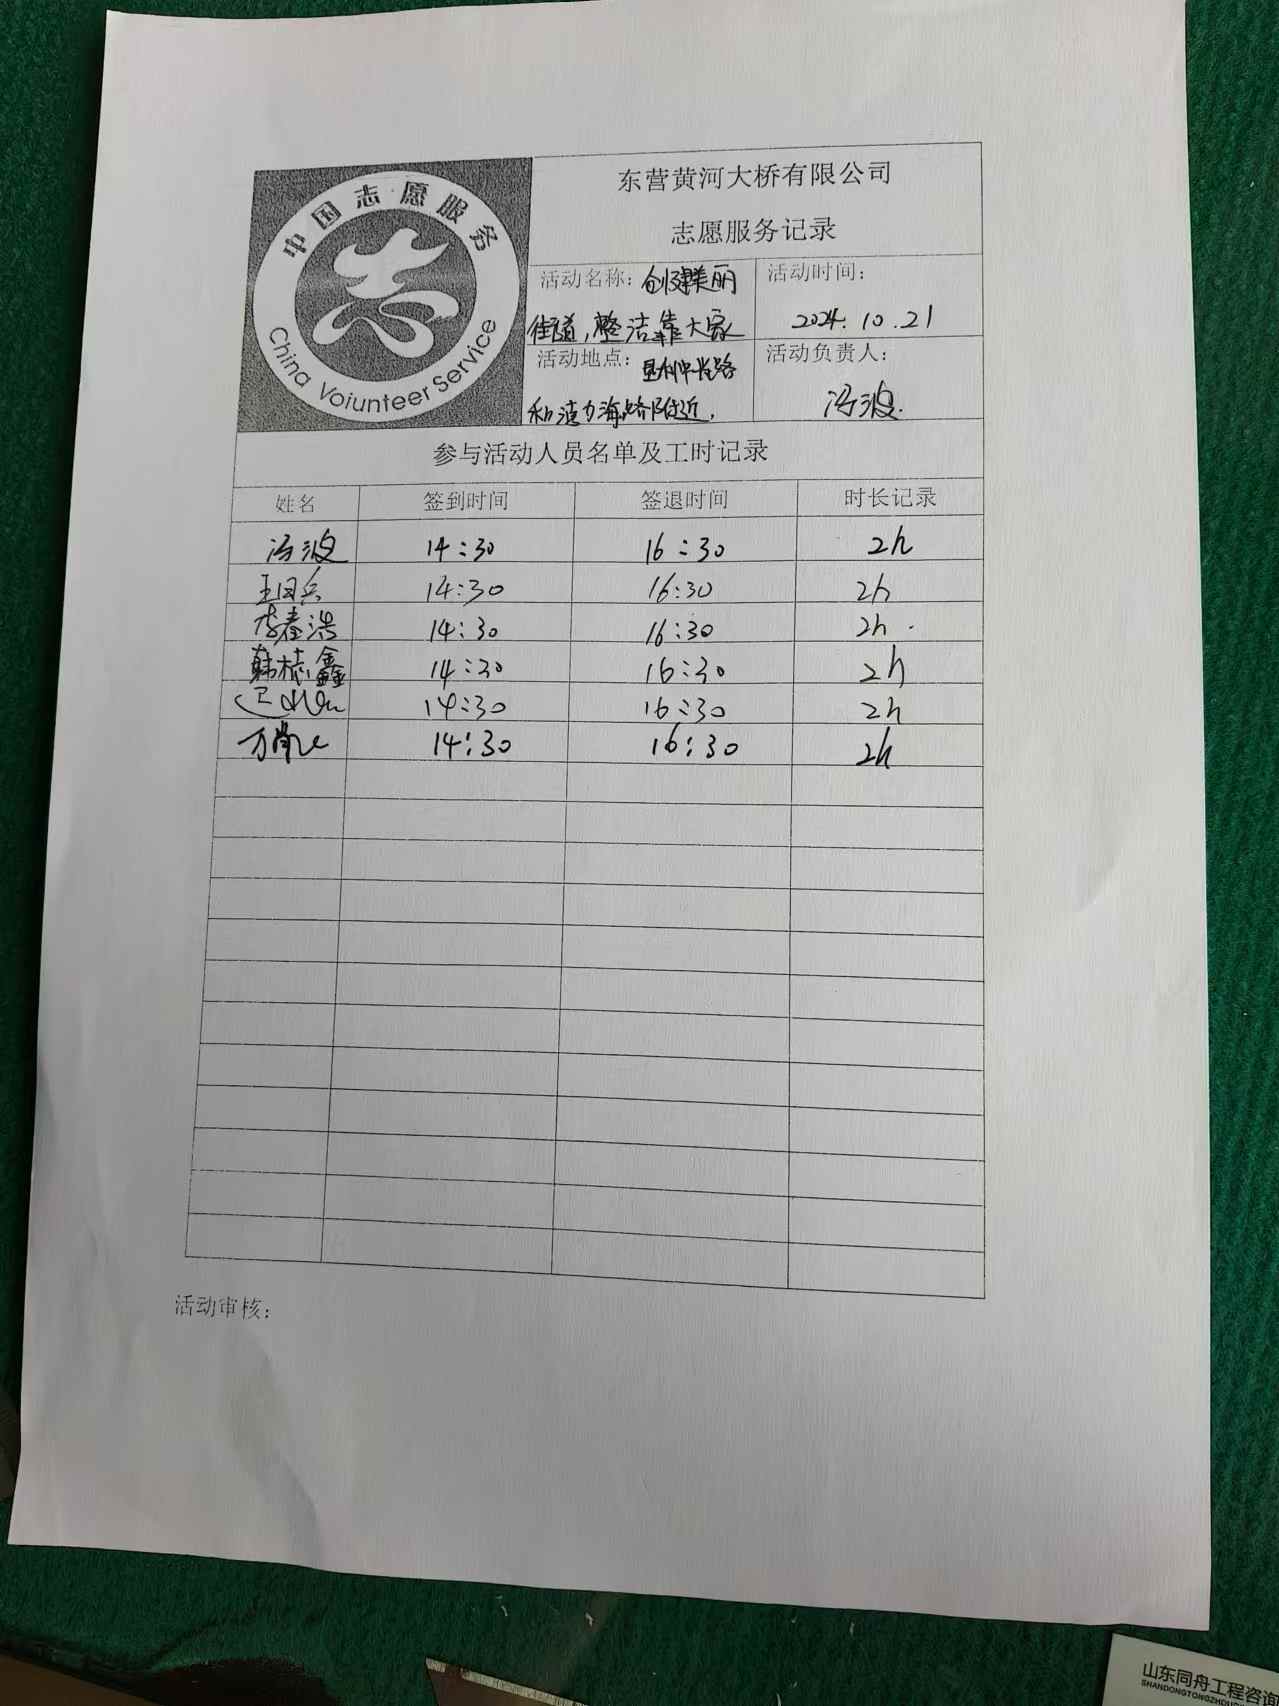 中国志愿服务
志
China Voiunteer Service
东营黄河大桥有限公司
志愿服务记录
活动名称：创建美丽
街道，整洁靠大家
活动时间：
2024.10.21
活动地点：
和渤海路附近.
活动负责人：
冯波.
参与活动人员名单及工时记录
姓名 签到时间 签退时间 时长记录
冯波 14:30 16:30 2h
14:30 16:30 2h
李春浩 14:30 16:30 2h
韩志鑫 14:30 16:30 2h
14:30 16:30 2h
14:30 16:30 2h
活动审核：
山东同舟工程咨询